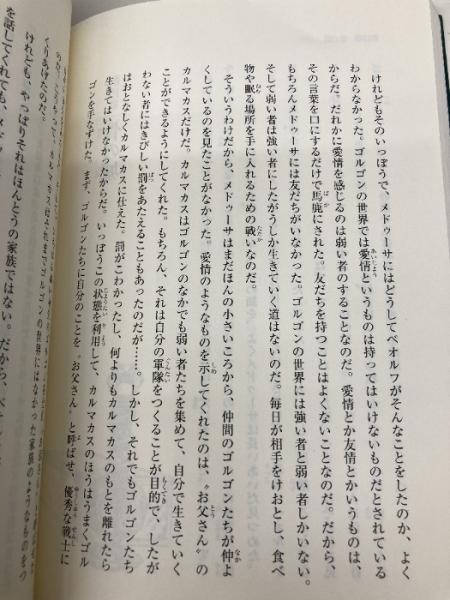 けれどもそのいっぽうで、メドゥーサにはどうしてペオルフがそんなことをしたのか、よく
わからなかった。ゴルゴンの世界では愛情というものは持ってはいけないものだとされている
からだ。だれかに愛情を感じるのは弱い者のすることなのだ。愛情とか友情とかいうものは、
その言葉を口にするだけで馬鹿にされた。友だちを持つことはよくないことなのだ。だから、
もちろんメドゥーサには友だちがいなかった。ゴルゴンの世界には強い者と弱い者しかいない。
そして弱い者は強い者にしたがうしか生きていく道はないのだ。毎日が相手をけおとし、食べ
物や眠る場所を手に入れるための戦いなのだ。
そういうわけだから、メドゥーサはまだほんの小さいころから、仲間のゴルゴンたちが仲よ
くしているのを見たことがなかった。愛情のようなものを示してくれたのは、〝お父さん〟の
カルマカスだけだ。カルマカスはゴルゴンのなかでも弱い者たちを集めて、自分で生きていく
ことができるようにしてくれた。もちろん、それは自分の軍隊をつくることが目的で、したが
わない者にはきびしい罰をあたえることもあったのだが……。しかし、それでもゴルゴンたち
はおとなしくカルマカスに仕えた。罰がこわかったし、何よりもカルマカスのもとを離れたら
生きてはいけなかったからだ。いっぽうこの状態を利用して、カルマカスのほうはうまくゴル
ゴンを手なずけた。まず、ゴルゴンたちに自分のことを〝お父さん〟と呼ばせ、優秀な戦士に
くりあげたのだ。
けれども、やっぱりそれはほんとうの家族ではない。だから、
を話してくれても、